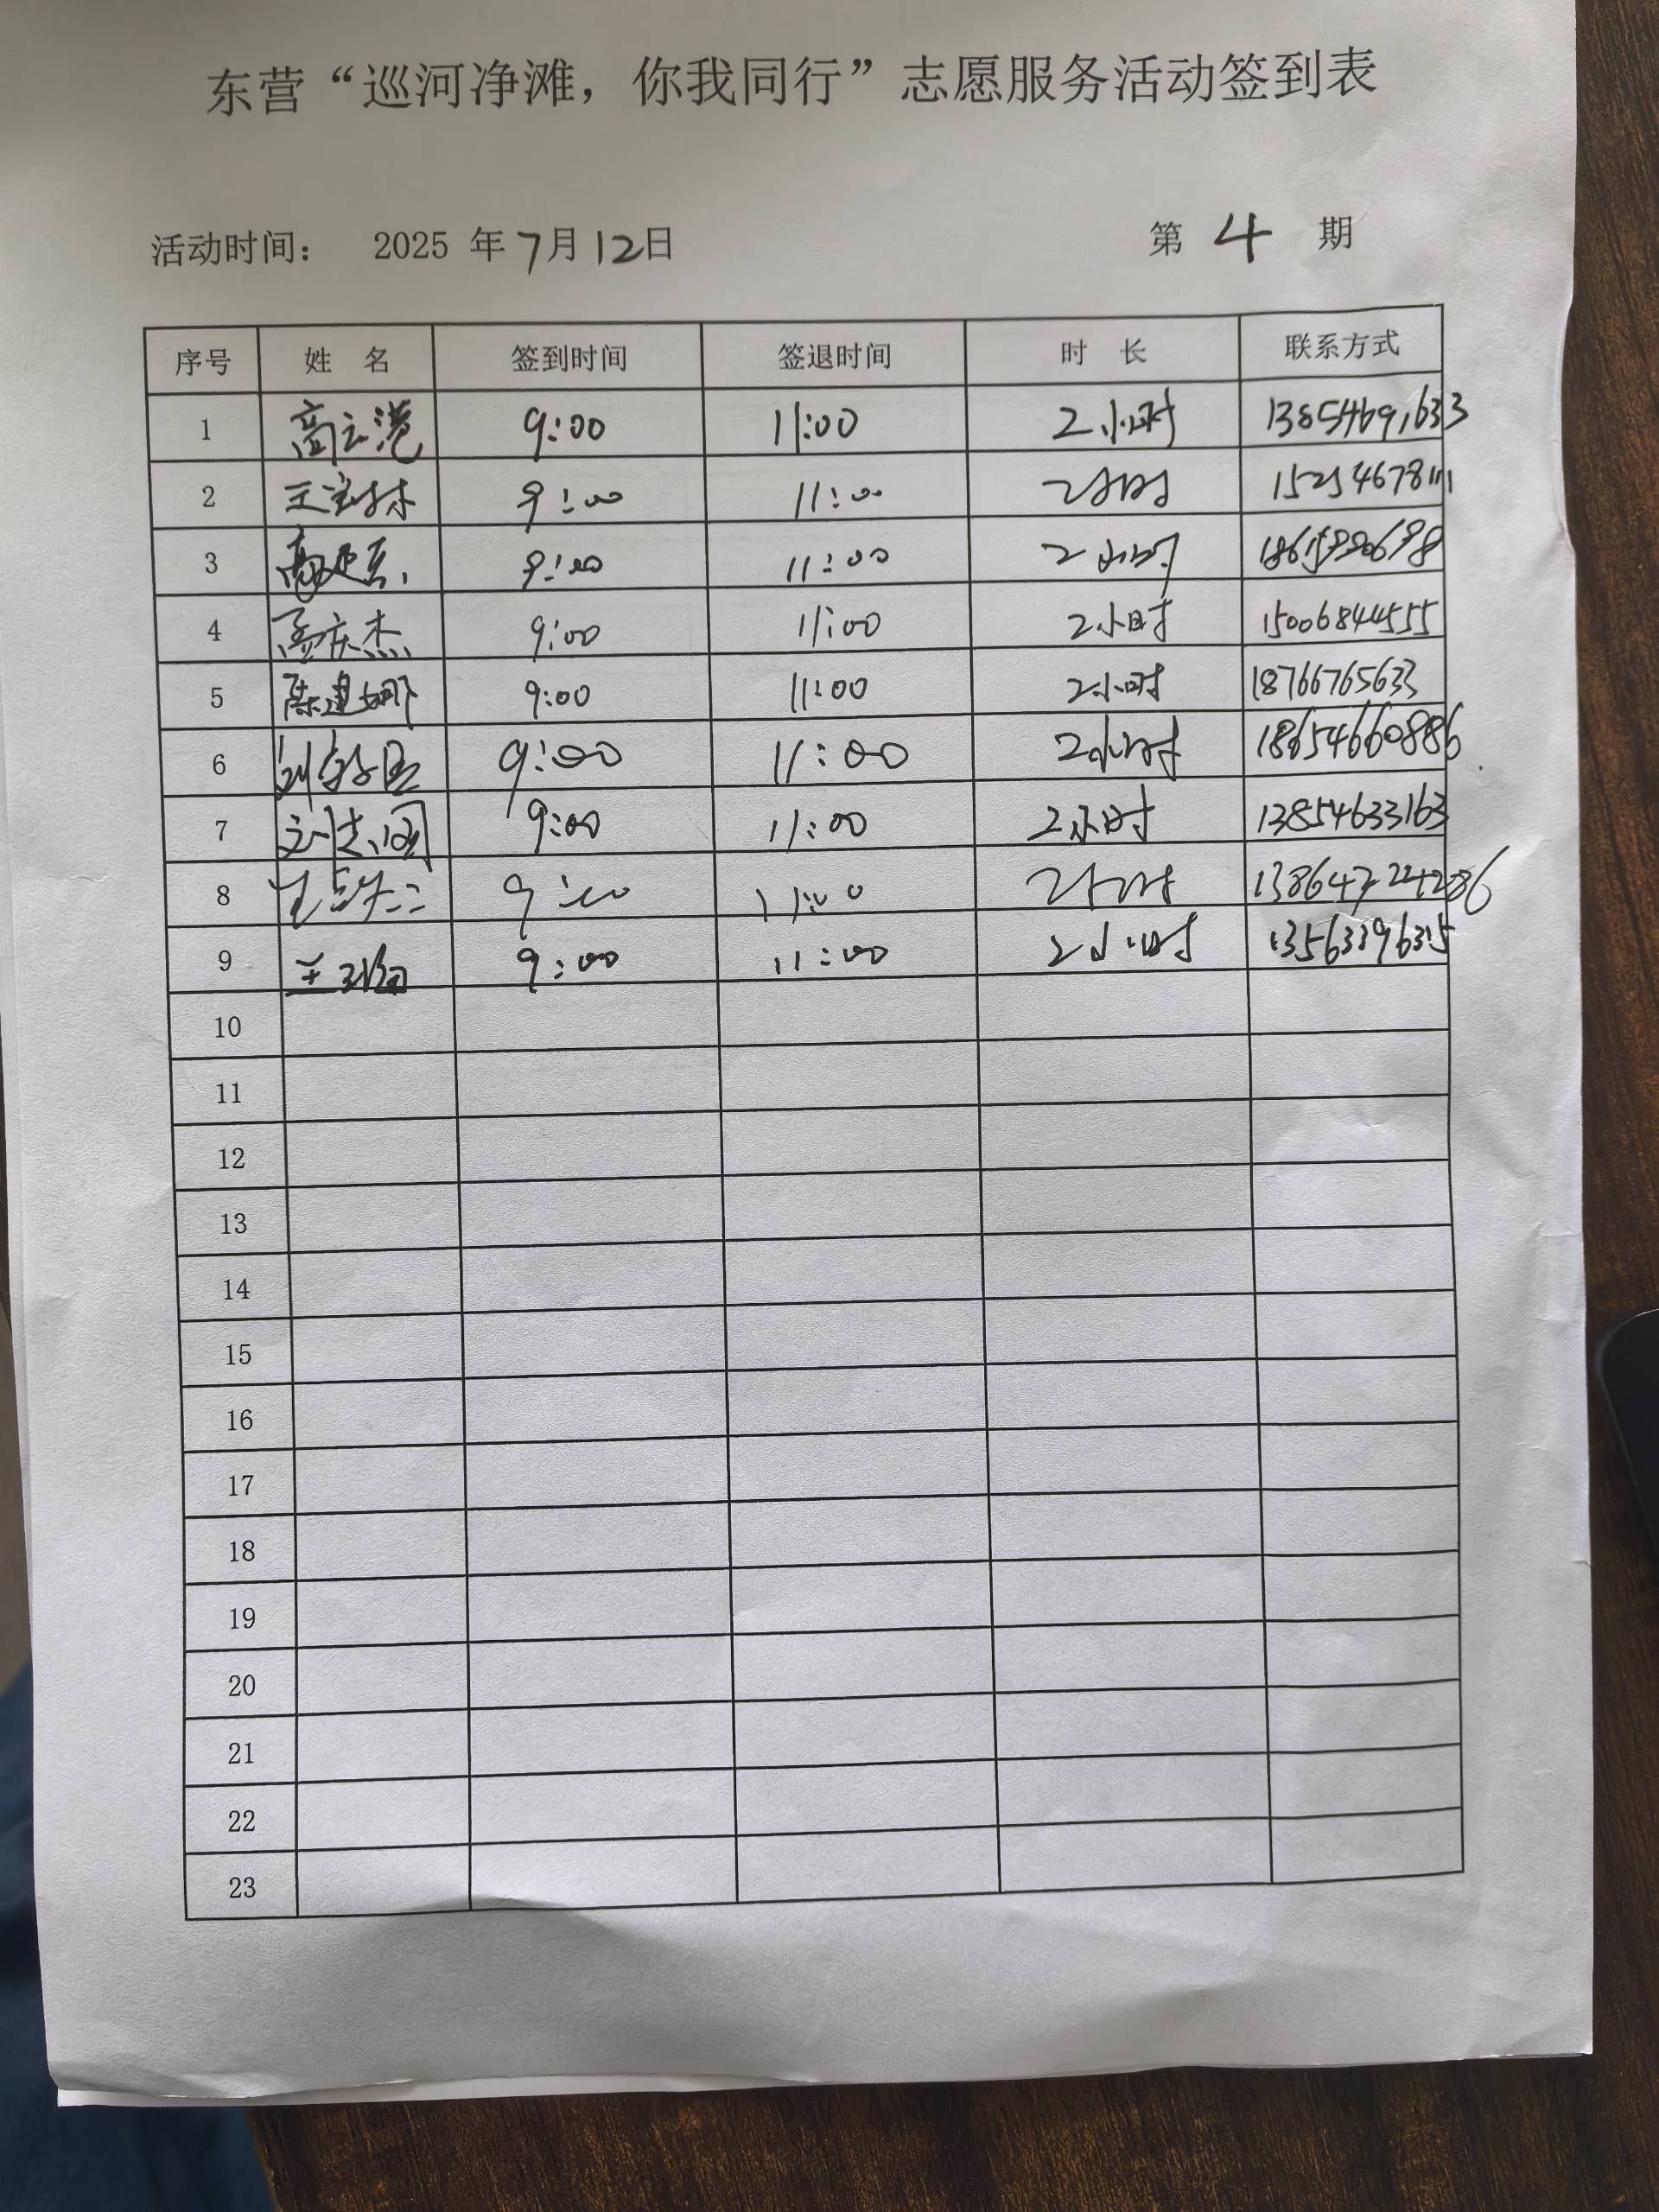 东营“巡河净滩，你我同行”志愿服务活动签到表
活动时间： 2025 年 7月 12日 第 4 期
序号 姓 名 签到时间 签退时间 时 长 联系方式
1 高云港 9:00 11:00 2小时 13854691633
2 9:00 11:00 2小时 15254678111
3 9:00 11:00 2小时
4 孟庆杰 9:00 11:00 2小时 15006844555
5 陈建娜 9:00 11:00 2小时 18766765633
6 9:00 11:00 2小时 18654660886
7 9:00 11:00 2小时 13854633163
8 9:00 11:00 2小时
9 9:00 11:00 2小时
10
11
12
13
14
15
16
17
18
19
20
21
22
23